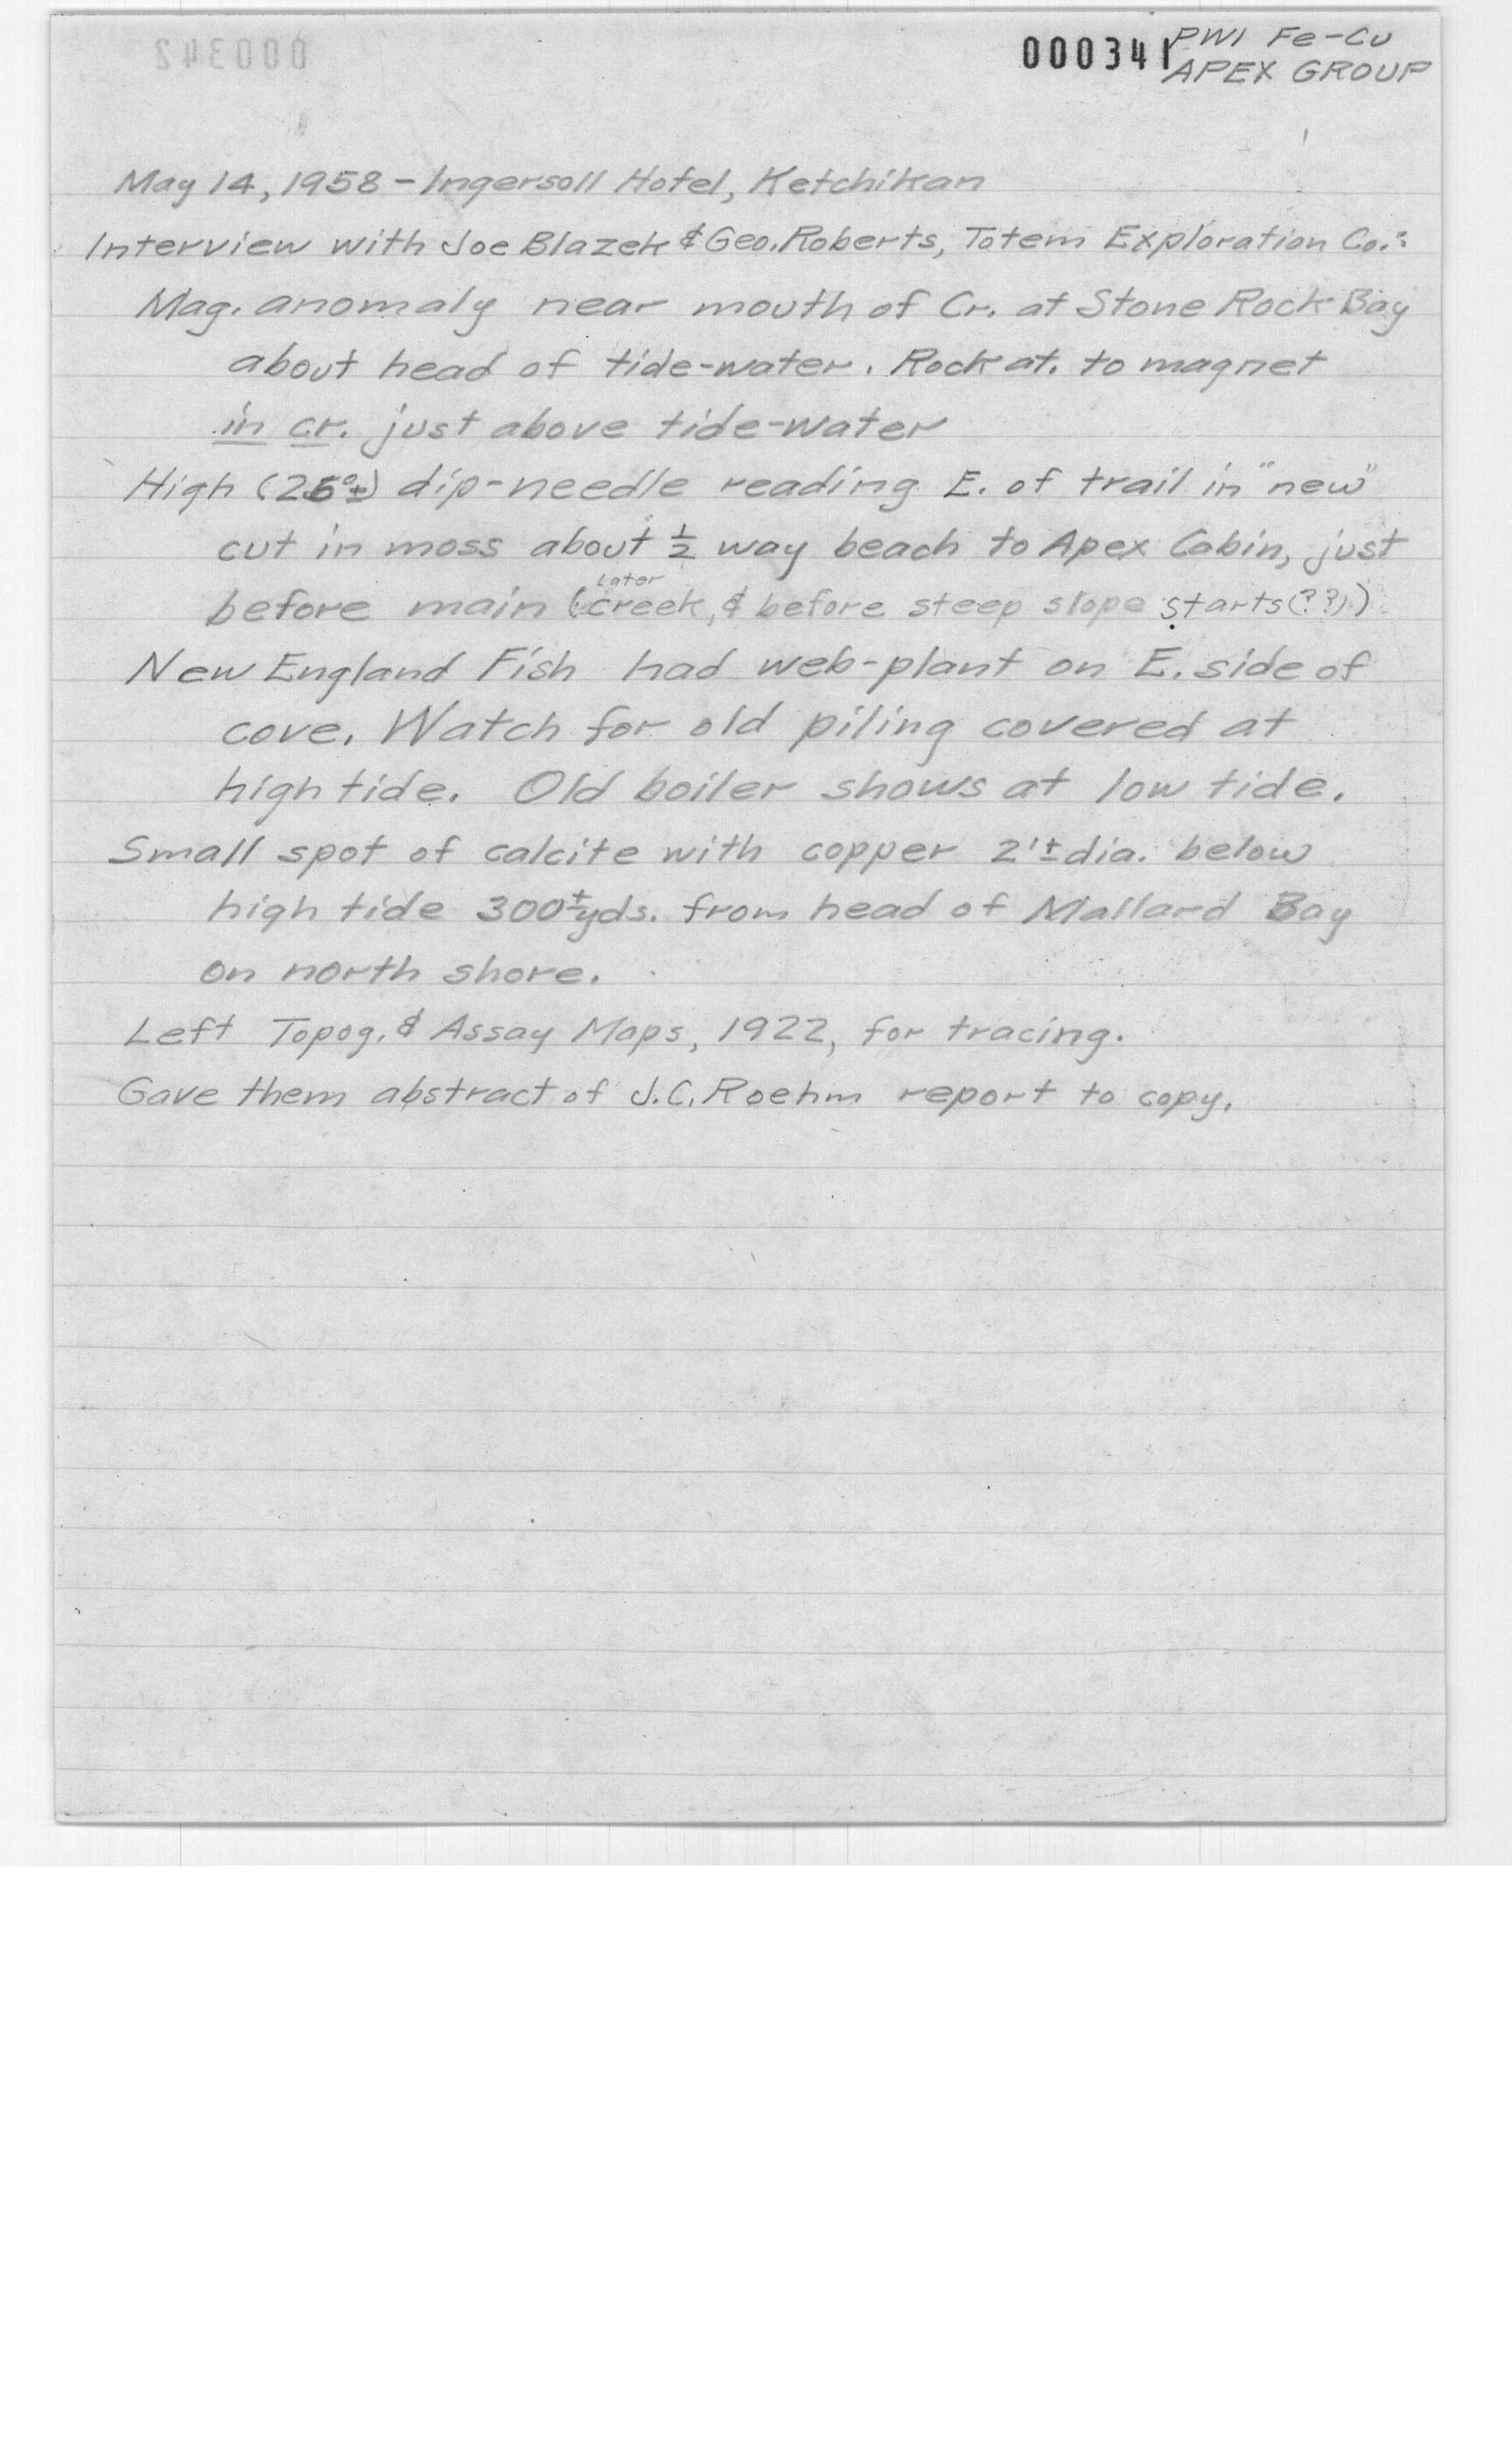 000341 PWI Fe-Cu
APEX GROUP
May 14, 1958 - Ingersoll Hotel, Ketchikan
Interview with Joe Blazek & Geo. Roberts, Totem Exploration Co.:
Mag. anomaly near mouth of Cr. at Stone Rock Bay
about head of tide-water. Rock at. to magnet
in cr. just above tide-water
High (2 °±) dip-needle reading E. of trail in "new"
cut in moss about ½ way beach to Apex Cabin, just
Later
before main (creek, & before steep slope starts (??))
New England Fish had web-plant on E. side of
cove. Watch for old piling covered at
high tide. Old boiler shows at low tide.
Small spot of calcite with copper 2'± dia. below
high tide 300± yds. from head of Mallard Bay
on north shore.
Left Topog. & Assay Maps, 1922, for tracing.
Gave them abstract of J.C. Roehm report to copy.